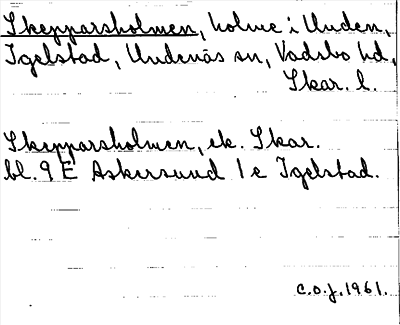 Skepparsholmen, holme i Unden,
Igelstad, Undenäs sn, Vadsbo hd,
Skar. l.
Skepparsholmen, ek. Skar.
bl. 9 E Askersund 1 e Igelstad.
C.O.J. 1961.